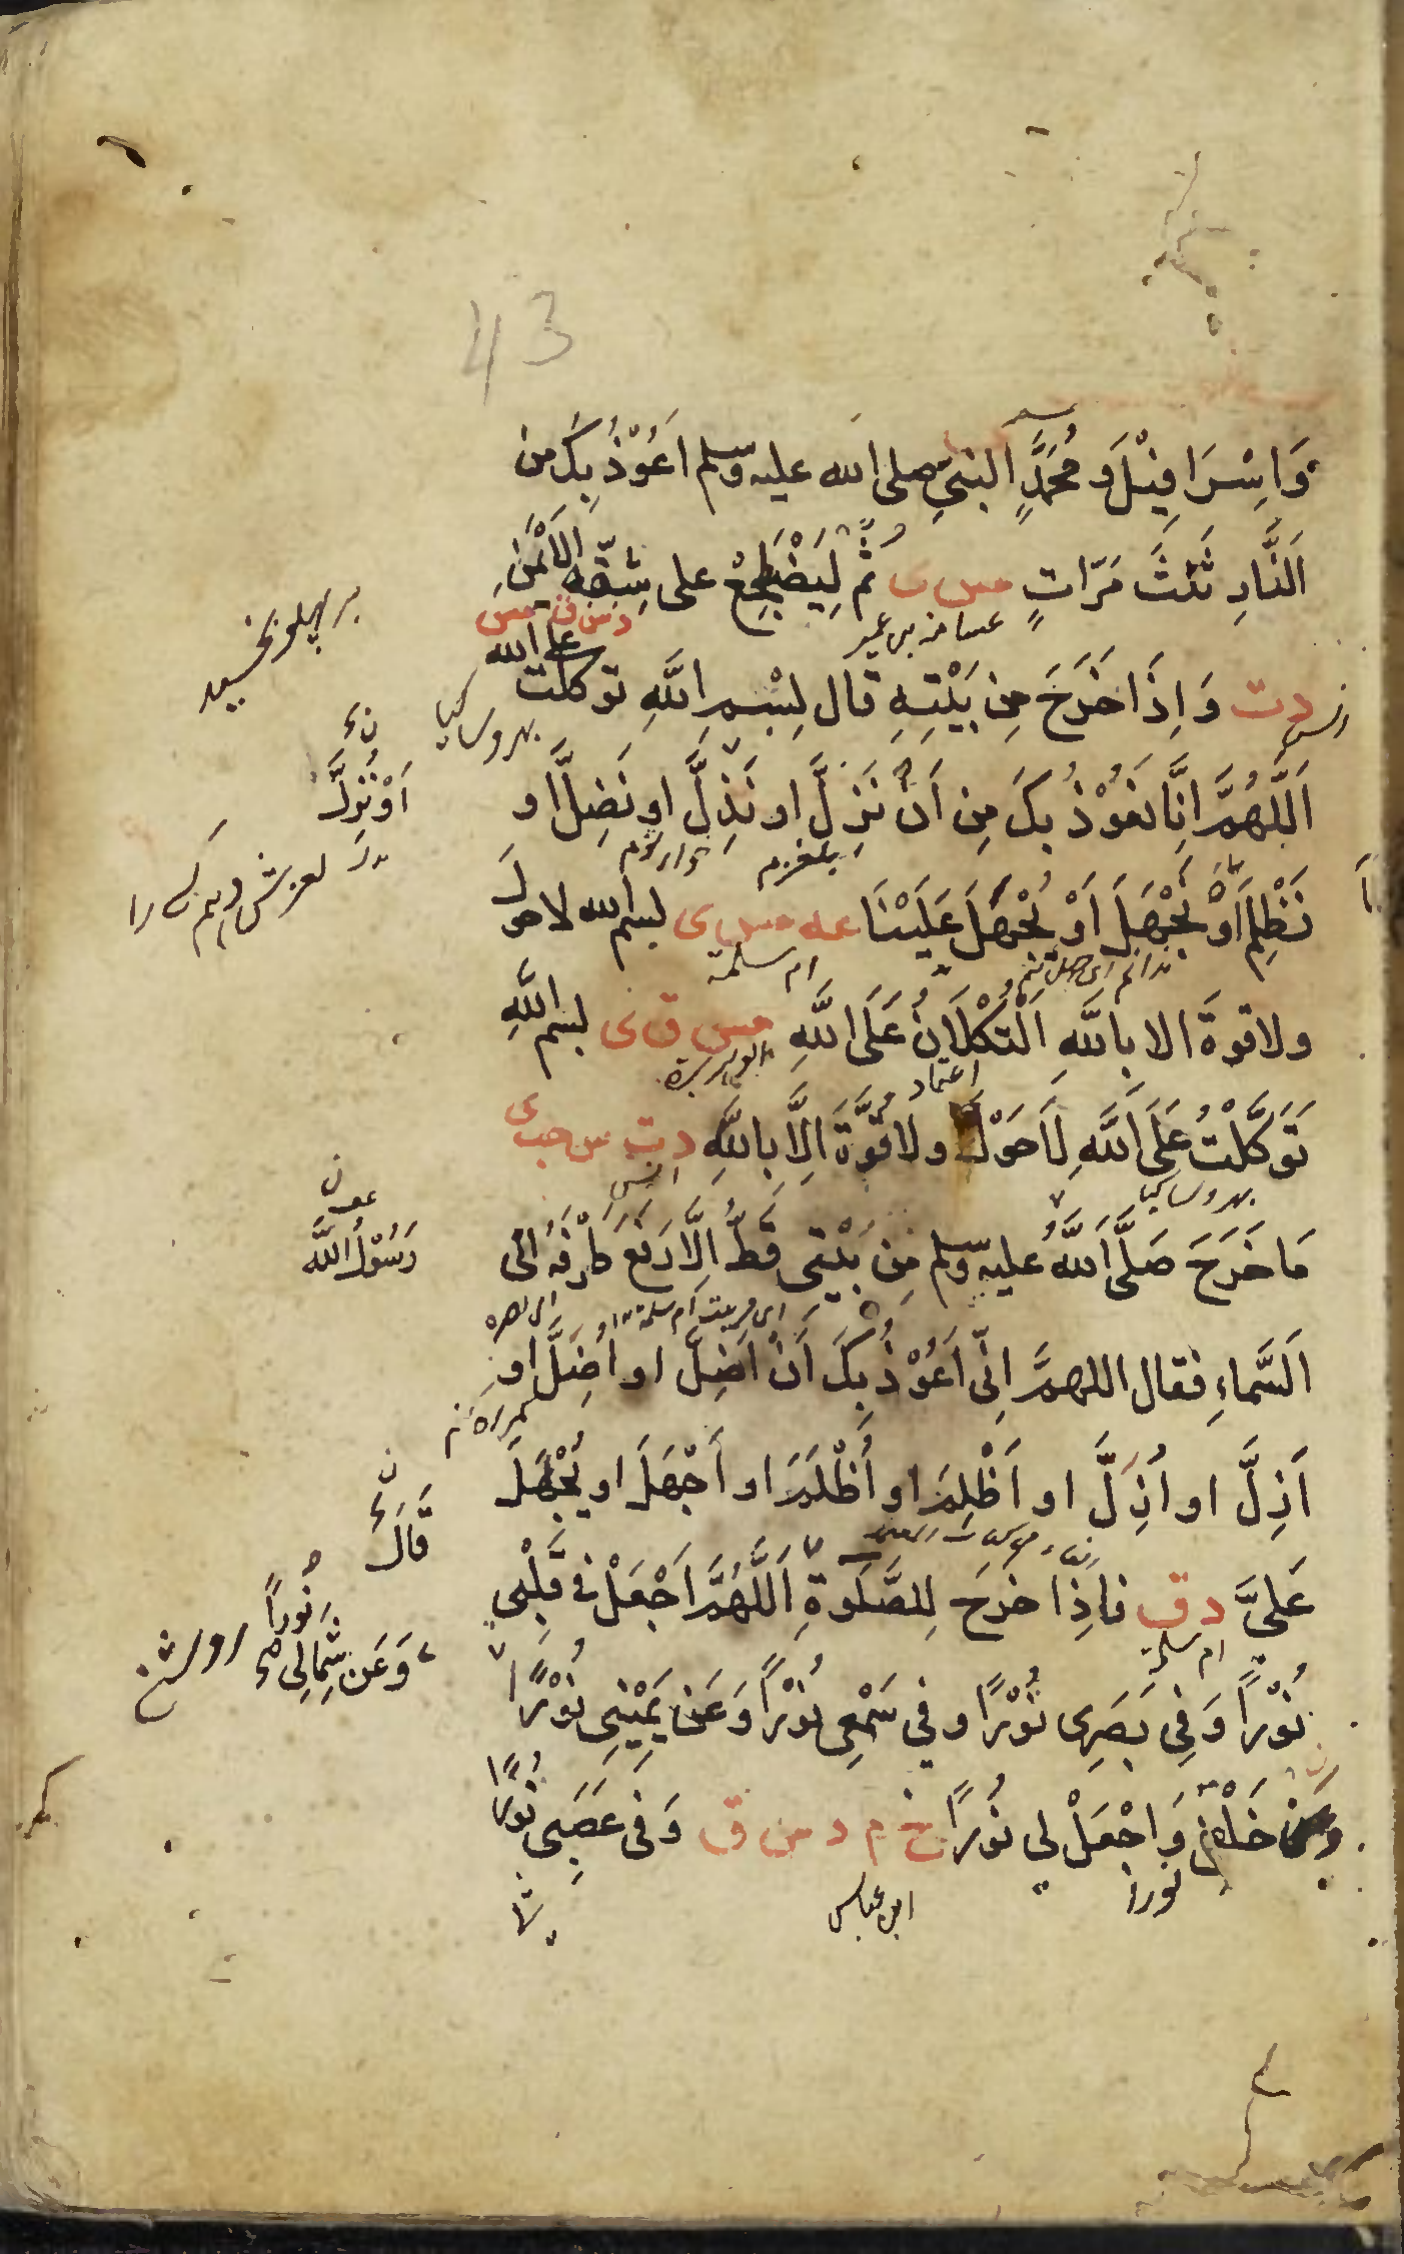 43
وَاِسْرَافِيْلَ وَ مُحَمَّدٍ النبيِّ صلى الله عليه وسلم اَعُوْذُ بِكَ من
اَلنَّارِ ثَلٰثَ مَرّاتٍ مس ى ثُمَّ لِيَضْطَجِعْ على شِقِّهِ الاَيْمَنِ
د س ق مس
بر پهلو بخسپد
دت وَ اِذَا خَرَجَ مِن بَيْتِهِ قال بِسْمِ اللهِ توكلت على الله
اَللّٰهُمَّ اِنَّا نَعُوْذُ بِكَ مِن اَنْ نَزِلَّ او نُذِلَّ او نَضِلَّ او
اَوْ نُزِلَّ
نَظْلِمَ اَوْ نَجْهَلَ اَوْ يُجْهَلَ عَلَيْنَا عه مس ى بسم الله لا حولَ
ام سلمة
ولا قوةَ الا باللهِ اَلتُّكْلَانُ عَلَى اللهِ مس ق ى بسم اللهِ
اعتماد
تَوَكَّلْتُ عَلَى اللهِ لَا حَوْلَ ولا قُوَّةَ اِلَّا باللهِ د ت س حب ى
انس
مَا خَرَجَ صَلَّى اللهُ عليه وسلم مِن بَيْتِي قَطُّ اِلَّا رَفَعَ طَرْفَهُ اِلَى
رَسُوْلُ اللهِ
اَلسَّمَاءِ فقال اللهمَّ اِنّي اَعُوْذُ بِكَ اَنْ اَضِلَّ او اُضَلَّ او
اَذِلَّ او اُذِلَّ او اَظْلِمَ او اُظْلَمَ او اَجْهَلَ او يُجْهَلَ
قَالَ
عَلَيَّ د ق فاذا خرج لِلصَّلٰوةِ اَللّٰهُمَّ اجْعَلْ في قَلْبِي
ام سلمة
نُوْرًا وَ فِي بَصَرِي نُوْرًا و في سَمْعِي نُوْرًا وَ عَن يَمِيْنِي نُوْرًا
وَ عَن شِمَالِي نُورًا
وَ عن خَلْفِي وَ اجْعَلْ لي نُوْرًا خ م د س ق وَ في عَصَبِي نُوْرًا
نورًا
ابن عباس